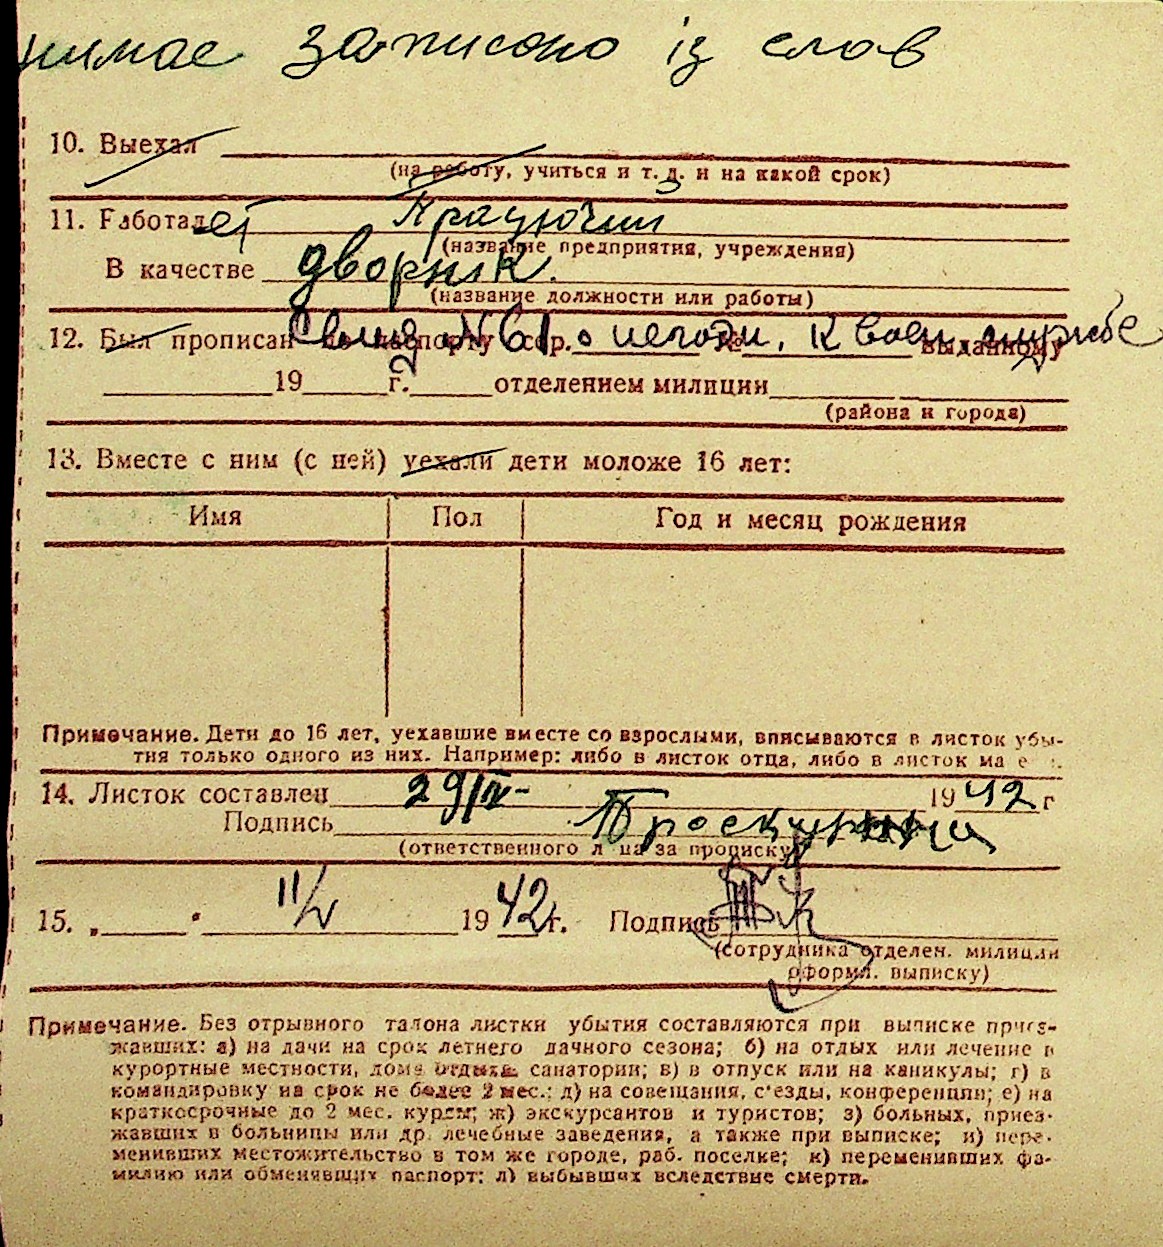 нимае записоно із слов
10. Выехал
(на работу, учиться и т. д. и на какой срок)
11. Работает
(название предприятия, учреждения)
В качестве дворник.
(название должности или работы)
12. Был прописан по паспорту сер. № выданному
Свид. № 61 о негодн. к воен службе
19 г. отделением милиции
(района и города)
13. Вместе с ним (с ней) уехали дети моложе 16 лет:
Имя Пол Год и месяц рождения
Примечание. Дети до 16 лет, уехавшие вместе со взрослыми, вписываются в листок убы-
тия только одного из них. Например: либо в листок отца, либо в листок ма е
14. Листок составлен 29/IV- 1942 г
Подпись Проскурина
(ответственного л ца за прописку)
15. „ " 11/V 1942 г. Подпись
(сотрудника отделен. милиции
оформл. выписку)
Примечание. Без отрывного талона листки убытия составляются при выписке приез-
жавших: а) на дачи на срок летнего дачного сезона; б) на отдых или лечение в
курортные местности, дома отдыха, санатории; в) в отпуск или на каникулы; г) в
командировку на срок не более 2 мес.; д) на совещания, с'езды, конференции; е) на
краткосрочные до 2 мес. курсы; ж) экскурсантов и туристов; з) больных, приез-
жавших в больницы или др. лечебные заведения, а также при выписке; и) пере-
менивших местожительство в том же городе, раб. поселке; к) переменивших фа-
милию или обменявших паспорт; л) выбывших вследствие смерти.